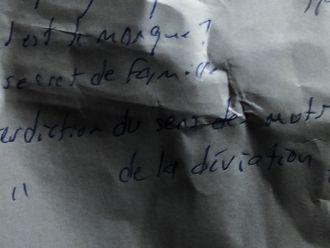 est ? manque?
secret de famill
erdiction du sens des mots
de la déviation
"